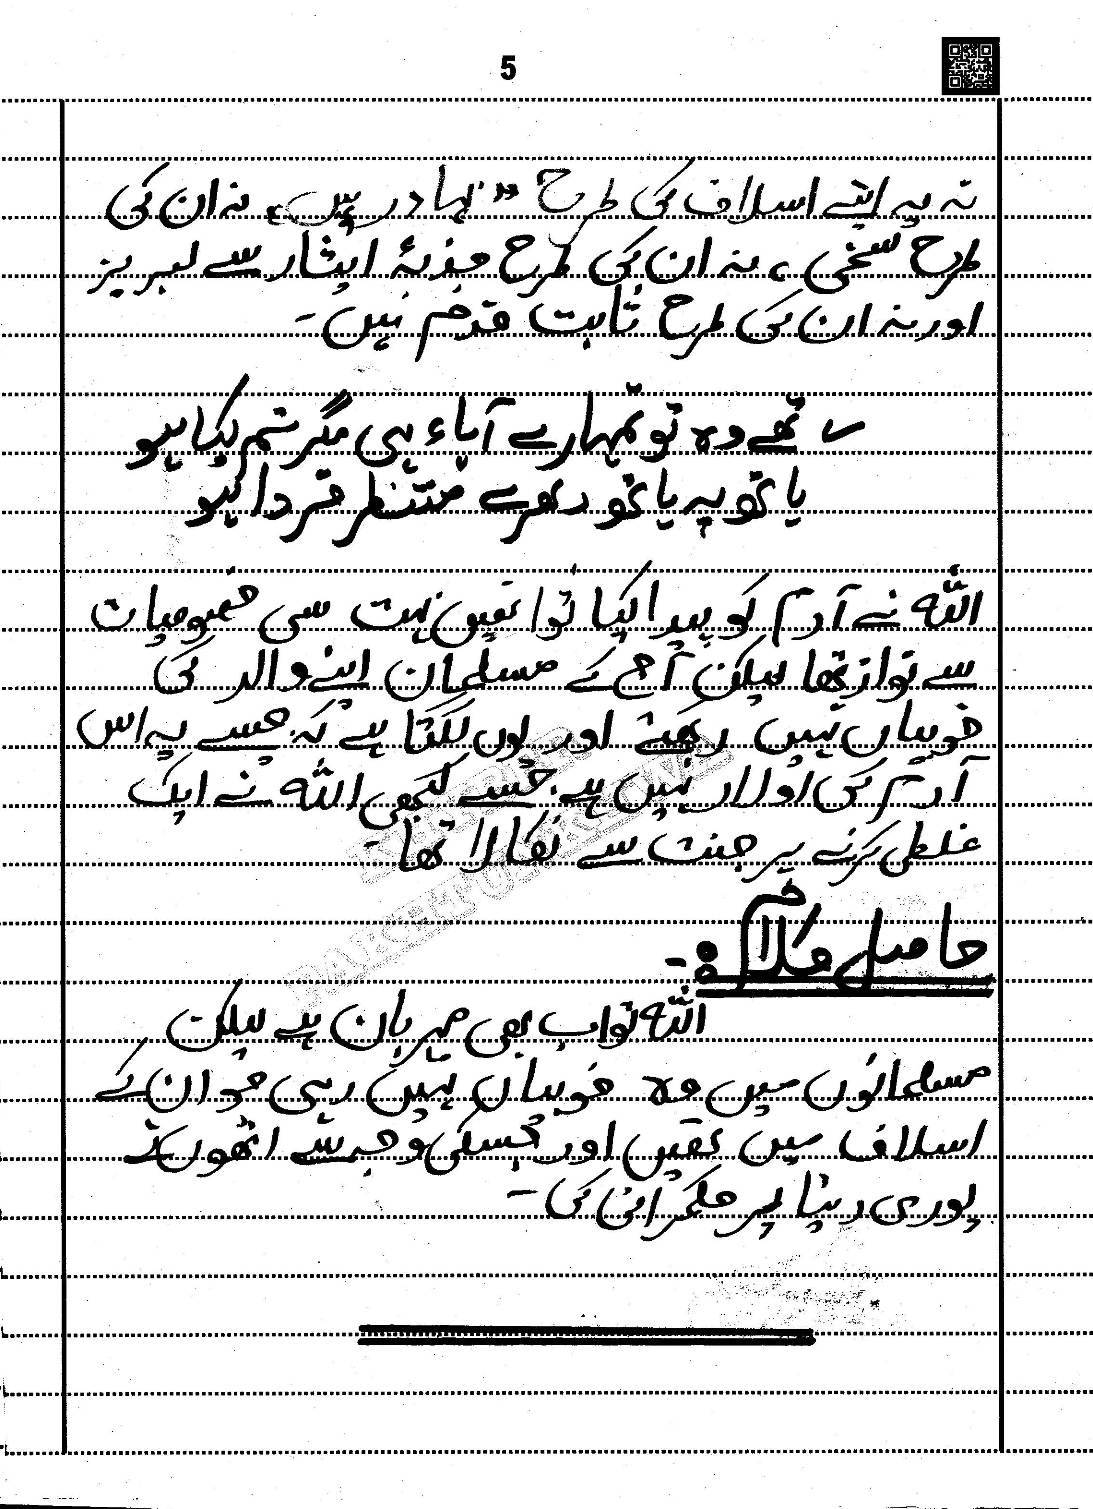 5
نہ یہ اپنے اسلاف کی طرح "بہادر ہیں، نہ ان کی
طرح سخی، نہ ان کی طرح جذبۂ ایثار سے لبریز
اور نہ ان کی طرح ثابت قدم ہیں۔
؎ تھے وہ تو تمہارے آباء ہی مگر تم کیا ہو
ہاتھ پہ ہاتھ دھرے منتظر فردا ہو
اللہ نے آدم کو پیدا کیا تو انھیں بہت سی خصوصیات
سے نوازتھا لیکن آج کے مسلمان اپنے والد کی
خوبیاں نہیں رکھتے اور یوں لگتا ہے کہ جیسے یہ اس
آدم کی اولاد نہیں ہے جسے کبھی اللہ نے ایک
غلطی کرنے پر جنت سے نکالا تھا۔
حاصل کلام :-
اللہ تو اب بھی مہربان ہے لیکن
مسلمانوں میں وہ خوبیاں نہیں رہی جو ان کے
اسلاف میں تھیں اور جسکی وجہ سے انھوں نے
پوری دنیا پر حکمرانی کی۔